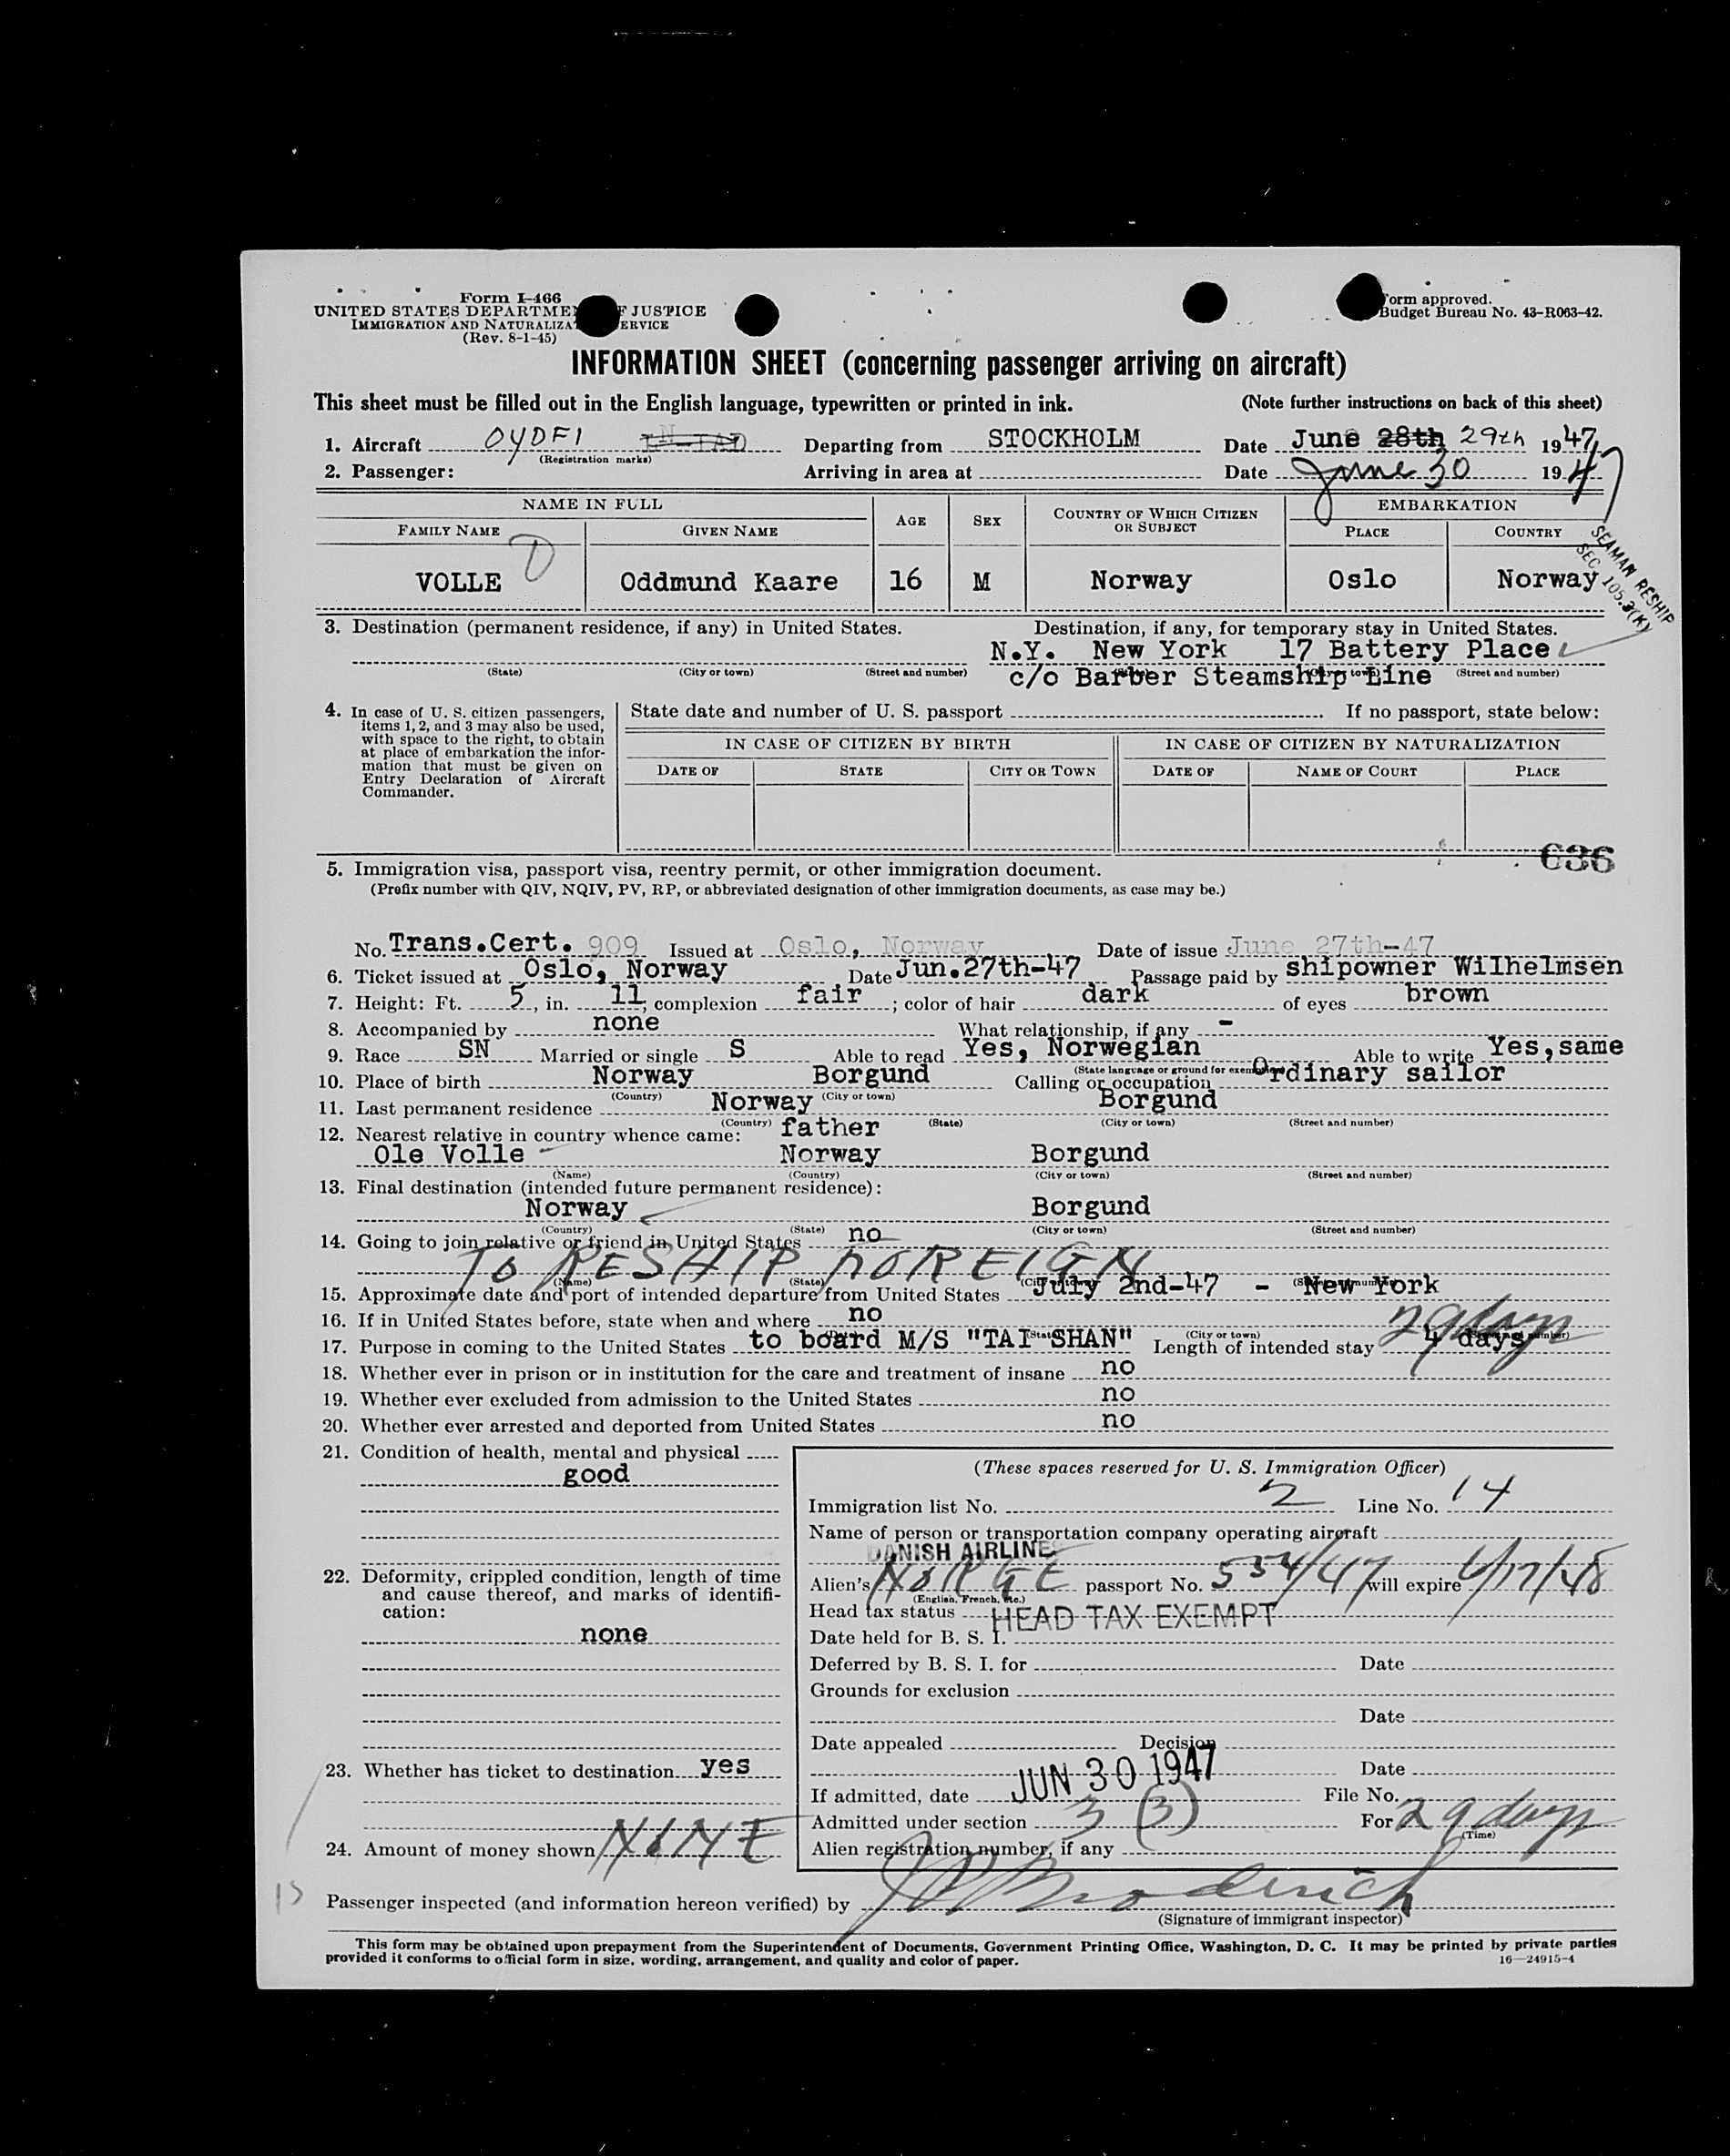 Form I-466
UNITED STATES DEPARTMENT OF JUSTICE
IMMIGRATION AND NATURALIZATION SERVICE
(Rev. 8-1-45)
Form approved.
Budget Bureau No. 43-R063-42.
INFORMATION SHEET (concerning passenger arriving on aircraft)
This sheet must be filled out in the English language, typewritten or printed in ink. (Note further instructions on back of this sheet)
1. Aircraft OYDFI Departing from STOCKHOLM Date June 28th 29th 1947
(Registration marks)
2. Passenger: Arriving in area at Date June 30 1947
NAME IN FULL AGE SEX COUNTRY OF WHICH CITIZEN OR SUBJECT EMBARKATION
FAMILY NAME GIVEN NAME PLACE COUNTRY
VOLLE Oddmund Kaare 16 M Norway Oslo Norway
SEAMAN RESHIP
SEC 105.3(K)
3. Destination (permanent residence, if any) in United States. Destination, if any, for temporary stay in United States.
N.Y. New York 17 Battery Place
(State) (City or town) (Street and number) c/o Barber Steamship Line (Street and number)
4. In case of U. S. citizen passengers, items 1, 2, and 3 may also be used, with space to the right, to obtain at place of embarkation the information that must be given on Entry Declaration of Aircraft Commander.
State date and number of U. S. passport If no passport, state below:
IN CASE OF CITIZEN BY BIRTH IN CASE OF CITIZEN BY NATURALIZATION
DATE OF STATE CITY OR TOWN DATE OF NAME OF COURT PLACE
636
5. Immigration visa, passport visa, reentry permit, or other immigration document.
(Prefix number with QIV, NQIV, PV, RP, or abbreviated designation of other immigration documents, as case may be.)
No. Trans.Cert. 909 Issued at Oslo, Norway Date of issue June 27th-47
6. Ticket issued at Oslo, Norway Date Jun.27th-47 Passage paid by shipowner Wilhelmsen
7. Height: Ft. 5, in. 11; complexion fair; color of hair dark of eyes brown
8. Accompanied by none What relationship, if any -
9. Race SN Married or single S Able to read Yes, Norwegian Able to write Yes,same
(State language or ground for exemption)
10. Place of birth Norway Borgund Calling or occupation Ordinary sailor
(Country) (City or town)
11. Last permanent residence Norway Borgund
(Country) (State) (City or town) (Street and number)
12. Nearest relative in country whence came: father
Ole Volle Norway Borgund
(Name) (Country) (City or town) (Street and number)
13. Final destination (intended future permanent residence):
Norway Borgund
(Country) (State) (City or town) (Street and number)
14. Going to join relative or friend in United States no
TO RESHIP FOREIGN
(Name) (State)
15. Approximate date and port of intended departure from United States July 2nd-47 - New York
16. If in United States before, state when and where no
(City or town)
17. Purpose in coming to the United States to board M/S "TAI SHAN" Length of intended stay 4 days 29 days
18. Whether ever in prison or in institution for the care and treatment of insane no
19. Whether ever excluded from admission to the United States no
20. Whether ever arrested and deported from United States no
21. Condition of health, mental and physical
good
22. Deformity, crippled condition, length of time and cause thereof, and marks of identification:
none
23. Whether has ticket to destination yes
24. Amount of money shown NONE
(These spaces reserved for U. S. Immigration Officer)
Immigration list No. 2 Line No. 14
Name of person or transportation company operating aircraft
DANISH AIRLINES
Alien's NORGE passport No. 534/47 will expire 6/17/48
(English, French, etc.)
Head tax status HEAD TAX EXEMPT
Date held for B. S. I.
Deferred by B. S. I. for Date
Grounds for exclusion
Date
Date appealed Decision
Date
If admitted, date JUN 30 1947 File No.
Admitted under section 3 (3) For 29 days
(Time)
Alien registration number, if any
15
Passenger inspected (and information hereon verified) by Broderick
(Signature of immigrant inspector)
This form may be obtained upon prepayment from the Superintendent of Documents, Government Printing Office, Washington, D. C. It may be printed by private parties
provided it conforms to official form in size, wording, arrangement, and quality and color of paper. 16—24915-4